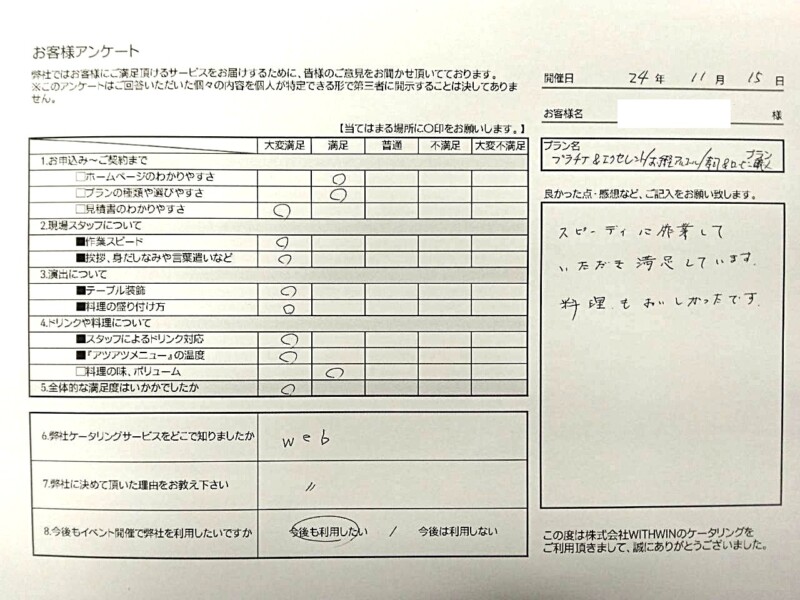 お客様アンケート
弊社ではお客様にご満足頂けるサービスをお届けするために、皆様のご意見をお聞かせ頂いてております。
※このアンケートはご回答いただいた個々の内容を個人が特定できる形で第三者に開示することは決してありま
せん。
【当てはまる場所に〇印をお願いします。】
大変満足 満足 普通 不満足 大変不満足
1.お申込み～ご契約まで
□ホームページのわかりやすさ ○
□プランの種類や選びやすさ ○
□見積書のわかりやすさ ○
2.現場スタッフについて
■作業スピード ○
■挨拶、身だしなみや言葉遣いなど ○
3.演出について
■テーブル装飾 ○
■料理の盛り付け方 ○
4.ドリンクや料理について
■スタッフによるドリンク対応 ○
■『アツアツメニュー』の温度 ○
□料理の味、ボリューム ○
5.全体的な満足度はいかかでしたか ○
6.弊社ケータリングサービスをどこで知りましたか web
7.弊社に決めて頂いた理由をお教え下さい 〃
8.今後もイベント開催で弊社を利用したいですか 今後も利用したい / 今後は利用しない
開催日 24年 11月 15日
お客様名 様
プラン名
プラチナ&エクセレント/
プラン
良かった点・感想など、ご記入をお願い致します。
スピーディに作業して
いただき満足しています。
料理もおいしかったです。
この度は株式会社WITHWINのケータリングを
ご利用頂きまして、誠にありがとうございました。